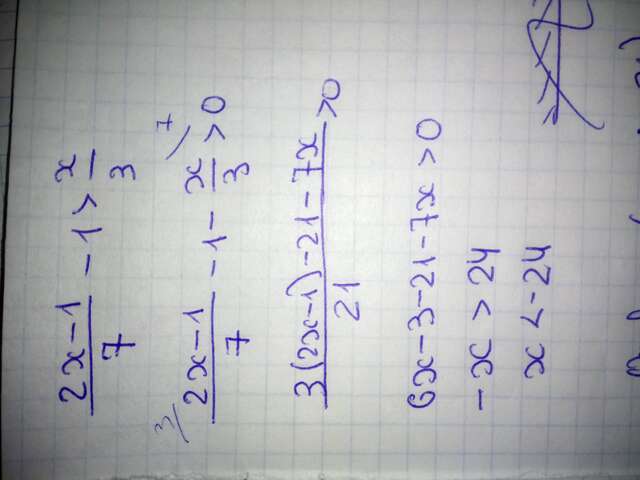 (2x-1)/7 - 1 > x/3
3/ (2x-1)/7 - 1 - 7/ x/3 > 0
(3(2x-1) - 21 - 7x)/21 > 0
6x-3-21-7x > 0
-x > 24
x < -24